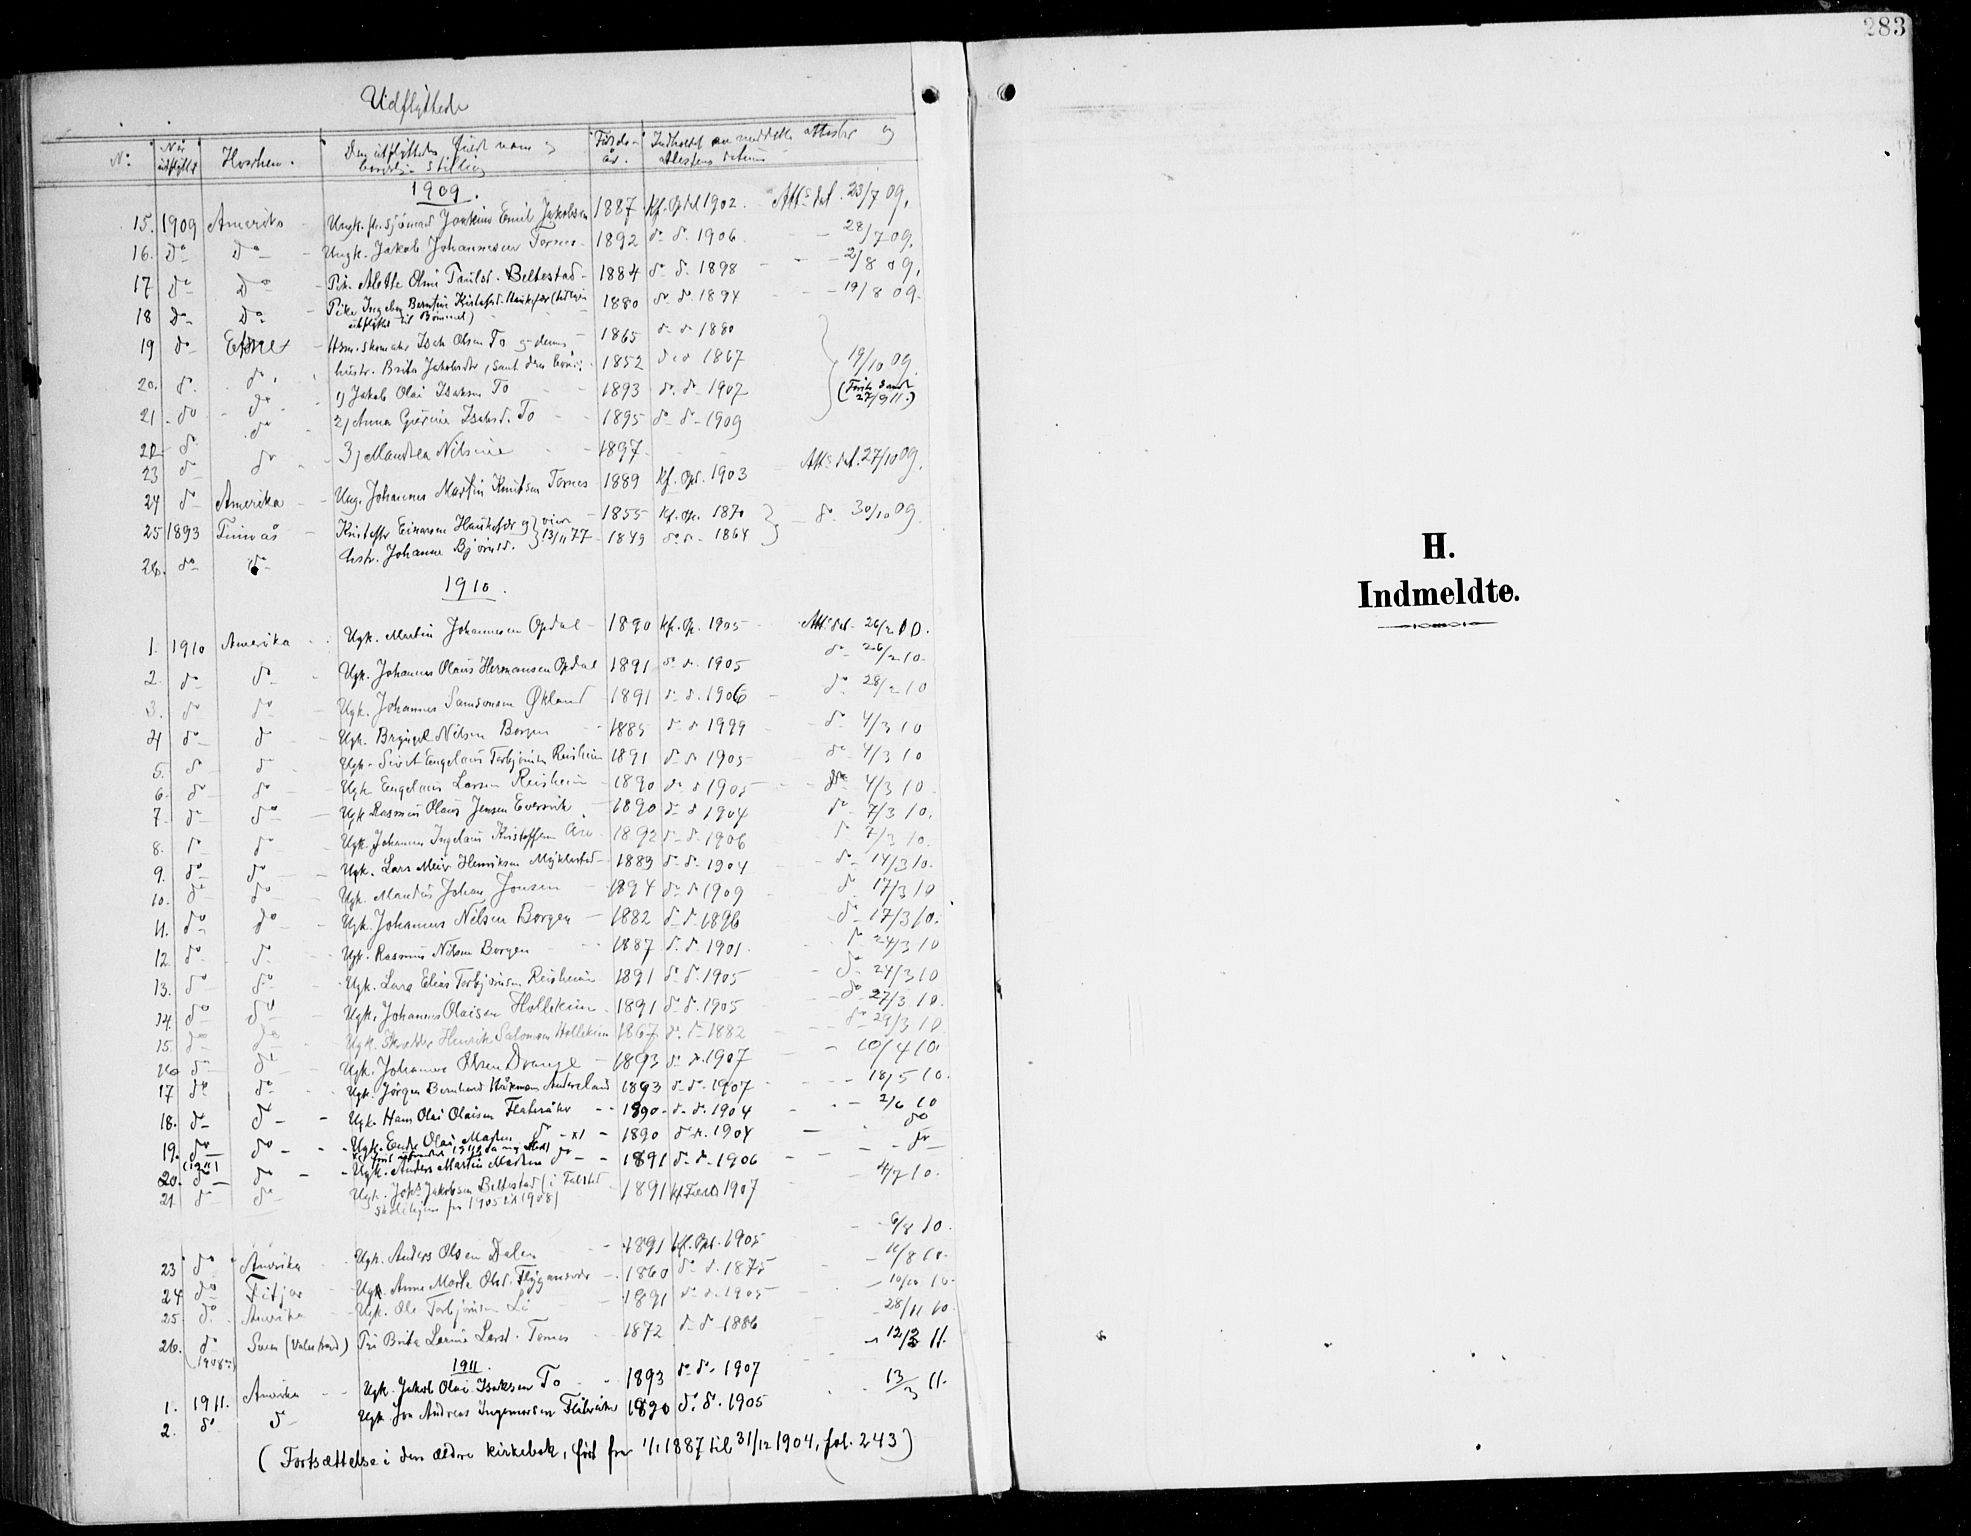 Udflyttede
No. Når udflyttet Hvorhen. Den udflyttedes fulde navn og borgerlige stilling Fødsels-år. Indholdet av meddelte attester og attestens datum
1909.
15. 1909 Amerika Ungk. sjømand Joakim Emil Jakobsen 1887 kf. Opdal 1902. Att. dat. 23/7 09.
16. do do Ungk. Jakob Johannesen Tornes 1892 do do 1906 28/7 09.
17 do Do Pik. Alette Oline Trulsd. Beltestad 1884 do d. 1898 2/8 09.
18 Do Do Pike Ingeborg Berntine Kristofd. Haukefær (tidligere udflyttet til Bømmel) 1880 do do 1894 19/8 09.
19 do Etne Hsm. skomaker Isak Olsen To og dennes 1865 do d 1880
20. do do hustr. Brita Jakobsdtr, samt deres børn: 1852 do d 1867 19/10 09.
21 do do 1) Jakob Olai Isaksen To 1893 do do 1907 27/9 11.)
22 do do 2) Anna Gurine Isaksd. To 1895 do do 1909
23 do do 3) Mandrea Nilsine 1897
24 do Amerika Ung. Johannes Martin Knutsen Tornes 1889 kf. Opd. 1903 Att. dat. 27/10 09.
25 1893 Finnås Kristoffer Einarsen Haukefær og viet 1855 kf. Op. 1870 do 30/10 09.
26. do do hstr. Johanne Bjørnsd. 13/11 77 1849 do d. 1864
1910.
1. 1910 Amerika Ugk. Martin Johannesen Opdal 1890 kf. Op. 1905 Att. dat. 26/2 10.
2. do do Ugk. Johannes Olaus Hermansen Opdal 1891 do d. 1905 do 26/2 10.
3. do do Ugk. Johannes Samsonsen Økland 1891 do d. 1906 do 28/2 10
4 do do Ugk. Brynjel Nilsen Borgen 1885 do d 1999 do 4/3 10
5. do do Ugk. Sivert Engelaus Torbjørnsen Reisheim 1891 do do 1905 do 4/3 10
6. do do Ugk Engelaus Larsen Reisheim 1890 do d 1905 do 4/3 10
7. do do Ugk Rasmus Olaus Jensen Eversvik 1890 do d 1904 do 7/3 10.
8. do do Ugk. Johannes Ingelaus Kristoffersen 1892 do do 1906 do 7/3 10.
9. do do Ugk. Lars Meier Henriksen Myklestad 1889 do do 1904 do 14/3 10.
10. do do Ugk. Mandius Johan Jonsen 1894 do d 1909 do 17/3 10
11. do do Ugk. Johannes Nilsen Borgen 1882 do d. 1896 do 17/3 10.
12. do do Ugk. Rasmus Nilsen Borgen 1887 do d. 1901. do 24/3 10
13. do do Ugk. Lars Elias Torbjørnsen Reisheim 1891 do d. 1905 do 24/3 10
14. do do Ugk. Johannes Olaisen Hollekim 1891 do d. 1905 do 27/3 10.
15. do do Ugk. Skrædder Henrik Salomon Hollekim 1867 do d 1882 do 29/3 10
16 do do Ugk. Johannes Olsen Drange 1893 do d. 1907 10/4 10.
17 do do Ugk. Jørgen Bernhard Håkonsen Andersland 1893 do do 1907 18/5 10.
18. do do Ugk. Hans Olai Olaisen Flateråker 1890 do d. 1904 2/6 10
19. do do Ugk. Endre Olai Madsen do x) 1890 do d. 1904 do
20. do do Ugk. Anders Martin Madsen do 1891 do d. 1906 do
21. do do Ugk. Johs Jakobsen Beltestad (i 1891 kf. 1907 4/7 10.
fra 1905 til 1908)
23 do Amerika Ugk. Anders Olsen Dalen 1891 kf. Opd. 1905 6/8 10.
24 do Fitjar Ugk Anne Marte Olsd. Flygansvær 1860 do d. 1875 11/8 10.
25 do Amerika Ugk. Ole Torbjørnsen Li 1891 do d. 1905 10/10 10.
26. do (1908) Sveen (Valestrand) Pi Brita Larine Larsd. Tornes 1872 do do 1886 28/11 10.
1911.
1. 1911. Amerika Ugk. Jakob Olai Isaksen To 1893 do do 1907 12/3 11.
2. do do Ugk. Jon Andreas Ingemarsen Flateråker 1890 do do. 1905 13/3 11.
(Fortsættelse i den ældre kirkebok, ført fra 1/1 1887 til 31/12 1904, fol. 243)
283
H.
Indmeldte.